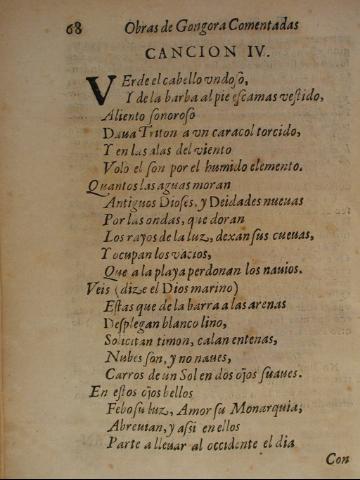 68 Obras de Gongora Comentadas
CANCION IV.
VErde el cabello vndoso,
Y de la barba al pie escamas vestido,
Aliento sonoroso
Daua Triton a vn caracol torcido,
Y en las alas del viento
Voló el son por el humido elemento.
Quantos las aguas moran
Antiguos Dioses, y Deidades nueuas
Por las ondas, que doran
Los rayos de la luz, dexan sus cueuas,
Y ocupan los vacios,
Que a la playa perdonan los nauios.
Veis (dize el Dios marino)
Estas que de la barra a las arenas
Desplegan blanco lino,
Solicitan timon, calan entenas,
Nubes son, y no naues,
Carros de un Sol en dos ojos suaues.
En estos ojos bellos
Febo su luz, Amor su Monarquia,
Abreuian, y assi en ellos
Parte a lleuar al occidente el dia
Con